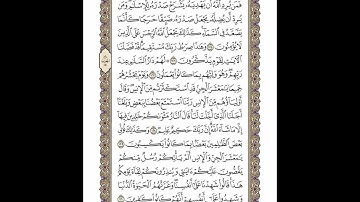 فَمَن يُرِدِ ٱللَّهُ أَن يَهْدِيَهُۥ يَشْرَحْ صَدْرَهُۥ لِلْإِسْلَٰمِ وَمَن
يُرِدْ أَن يُضِلَّهُۥ يَجْعَلْ صَدْرَهُۥ ضَيِّقًا حَرَجًا كَأَنَّمَا
يَصَّعَّدُ فِى ٱلسَّمَآءِ كَذَٰلِكَ يَجْعَلُ ٱللَّهُ ٱلرِّجْسَ عَلَى ٱلَّذِينَ
لَا يُؤْمِنُونَ ۝ وَهَٰذَا صِرَٰطُ رَبِّكَ مُسْتَقِيمًا قَدْ فَصَّلْنَا
ٱلْءَايَٰتِ لِقَوْمٍ يَذَّكَّرُونَ ۝ لَهُمْ دَارُ ٱلسَّلَٰمِ عِندَ
رَبِّهِمْ وَهُوَ وَلِيُّهُم بِمَا كَانُوا۟ يَعْمَلُونَ ۝ وَيَوْمَ يَحْشُرُهُمْ
جَمِيعًا يَٰمَعْشَرَ ٱلْجِنِّ قَدِ ٱسْتَكْثَرْتُم مِّنَ ٱلْإِنسِ وَقَالَ
أَوْلِيَآؤُهُم مِّنَ ٱلْإِنسِ رَبَّنَا ٱسْتَمْتَعَ بَعْضُنَا بِبَعْضٍ وَبَلَغْنَآ
أَجَلَنَا ٱلَّذِىٓ أَجَّلْتَ لَنَا قَالَ ٱلنَّارُ مَثْوَىٰكُمْ خَٰلِدِينَ فِيهَآ
إِلَّا مَا شَآءَ ٱللَّهُ إِنَّ رَبَّكَ حَكِيمٌ عَلِيمٌ ۝ وَكَذَٰلِكَ نُوَلِّى
بَعْضَ ٱلظَّٰلِمِينَ بَعْضًۢا بِمَا كَانُوا۟ يَكْسِبُونَ ۝
يَٰمَعْشَرَ ٱلْجِنِّ وَٱلْإِنسِ أَلَمْ يَأْتِكُمْ رُسُلٌ مِّنكُمْ
يَقُصُّونَ عَلَيْكُمْ ءَايَٰتِى وَيُنذِرُونَكُمْ لِقَآءَ يَوْمِكُمْ
هَٰذَا قَالُوا۟ شَهِدْنَا عَلَىٰٓ أَنفُسِنَا وَغَرَّتْهُمُ ٱلْحَيَوٰةُ ٱلدُّنْيَا
وَشَهِدُوا۟ عَلَىٰٓ أَنفُسِهِمْ أَنَّهُمْ كَانُوا۟ كَٰفِرِينَ ۝